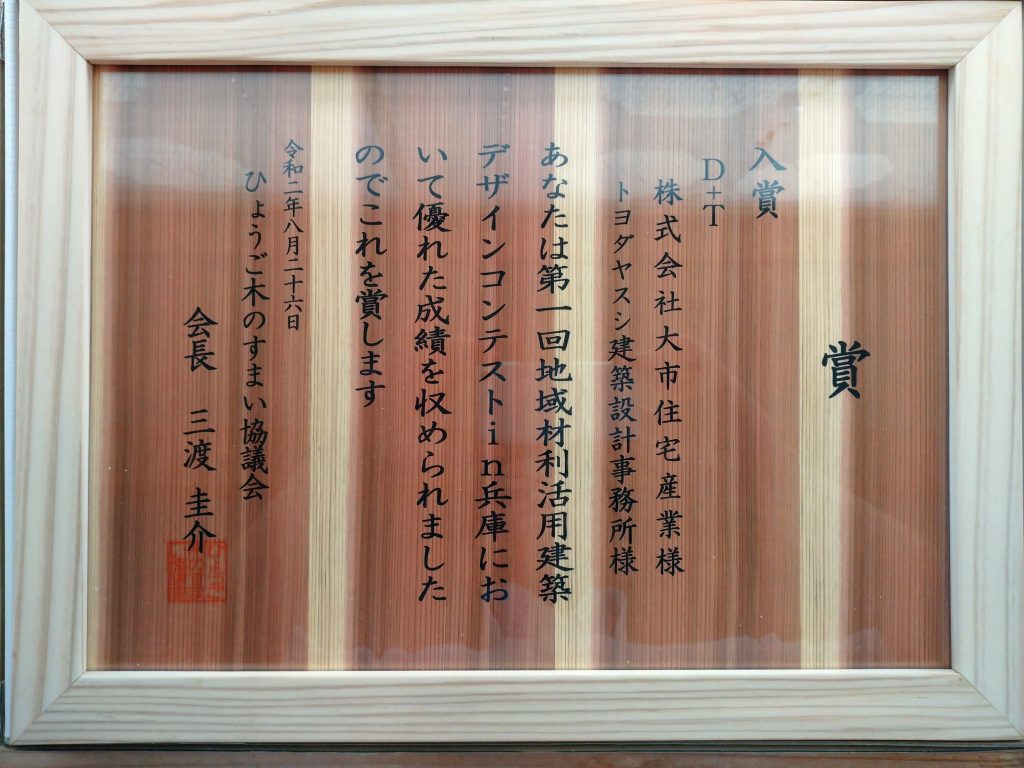 賞
入賞
D+T
株式会社大市住宅産業様
トヨダヤスシ建築設計事務所様
あなたは第一回地域材利活用建築
デザインコンテストin兵庫にお
いて優れた成績を収められました
のでこれを賞します
令和二年八月二十六日
ひょうご木のすまい協議会
会長 三渡 圭介